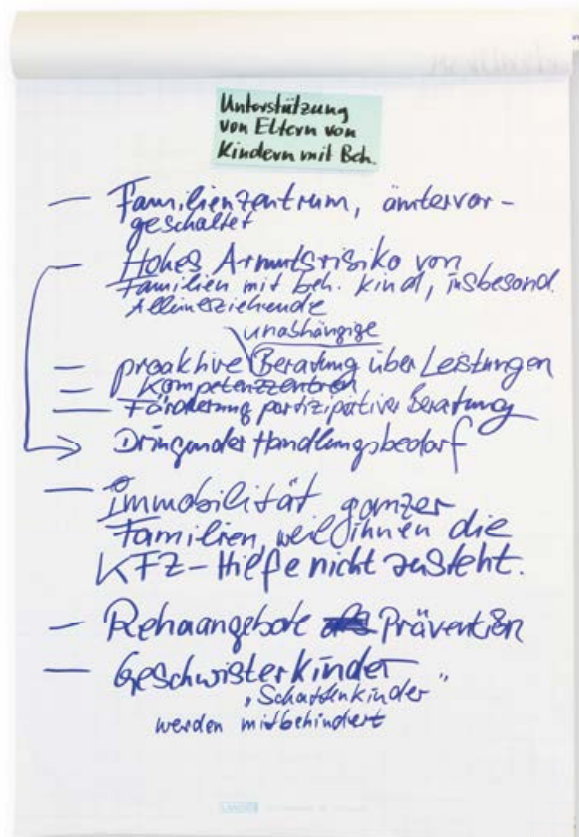 Unterstützung
von Eltern von
Kindern mit Beh.
— Familienzentrum, ämtervor-
geschaltet
— Hohes Armutsrisiko von
Familien mit beh. Kind, insbesond.
Alleinerziehende
unabhängige
— proaktive Beratung über Leistungen
— Kompetenzzentren
— Förderung partizipativer Beratung
Dringender Handlungsbedarf
— Immobilität ganzer
Familien, weil ihnen die
KFZ-Hilfe nicht zusteht.
— Rehaangebote als Prävention
— Geschwisterkinder
"Schattenkinder"
werden mitbehindert